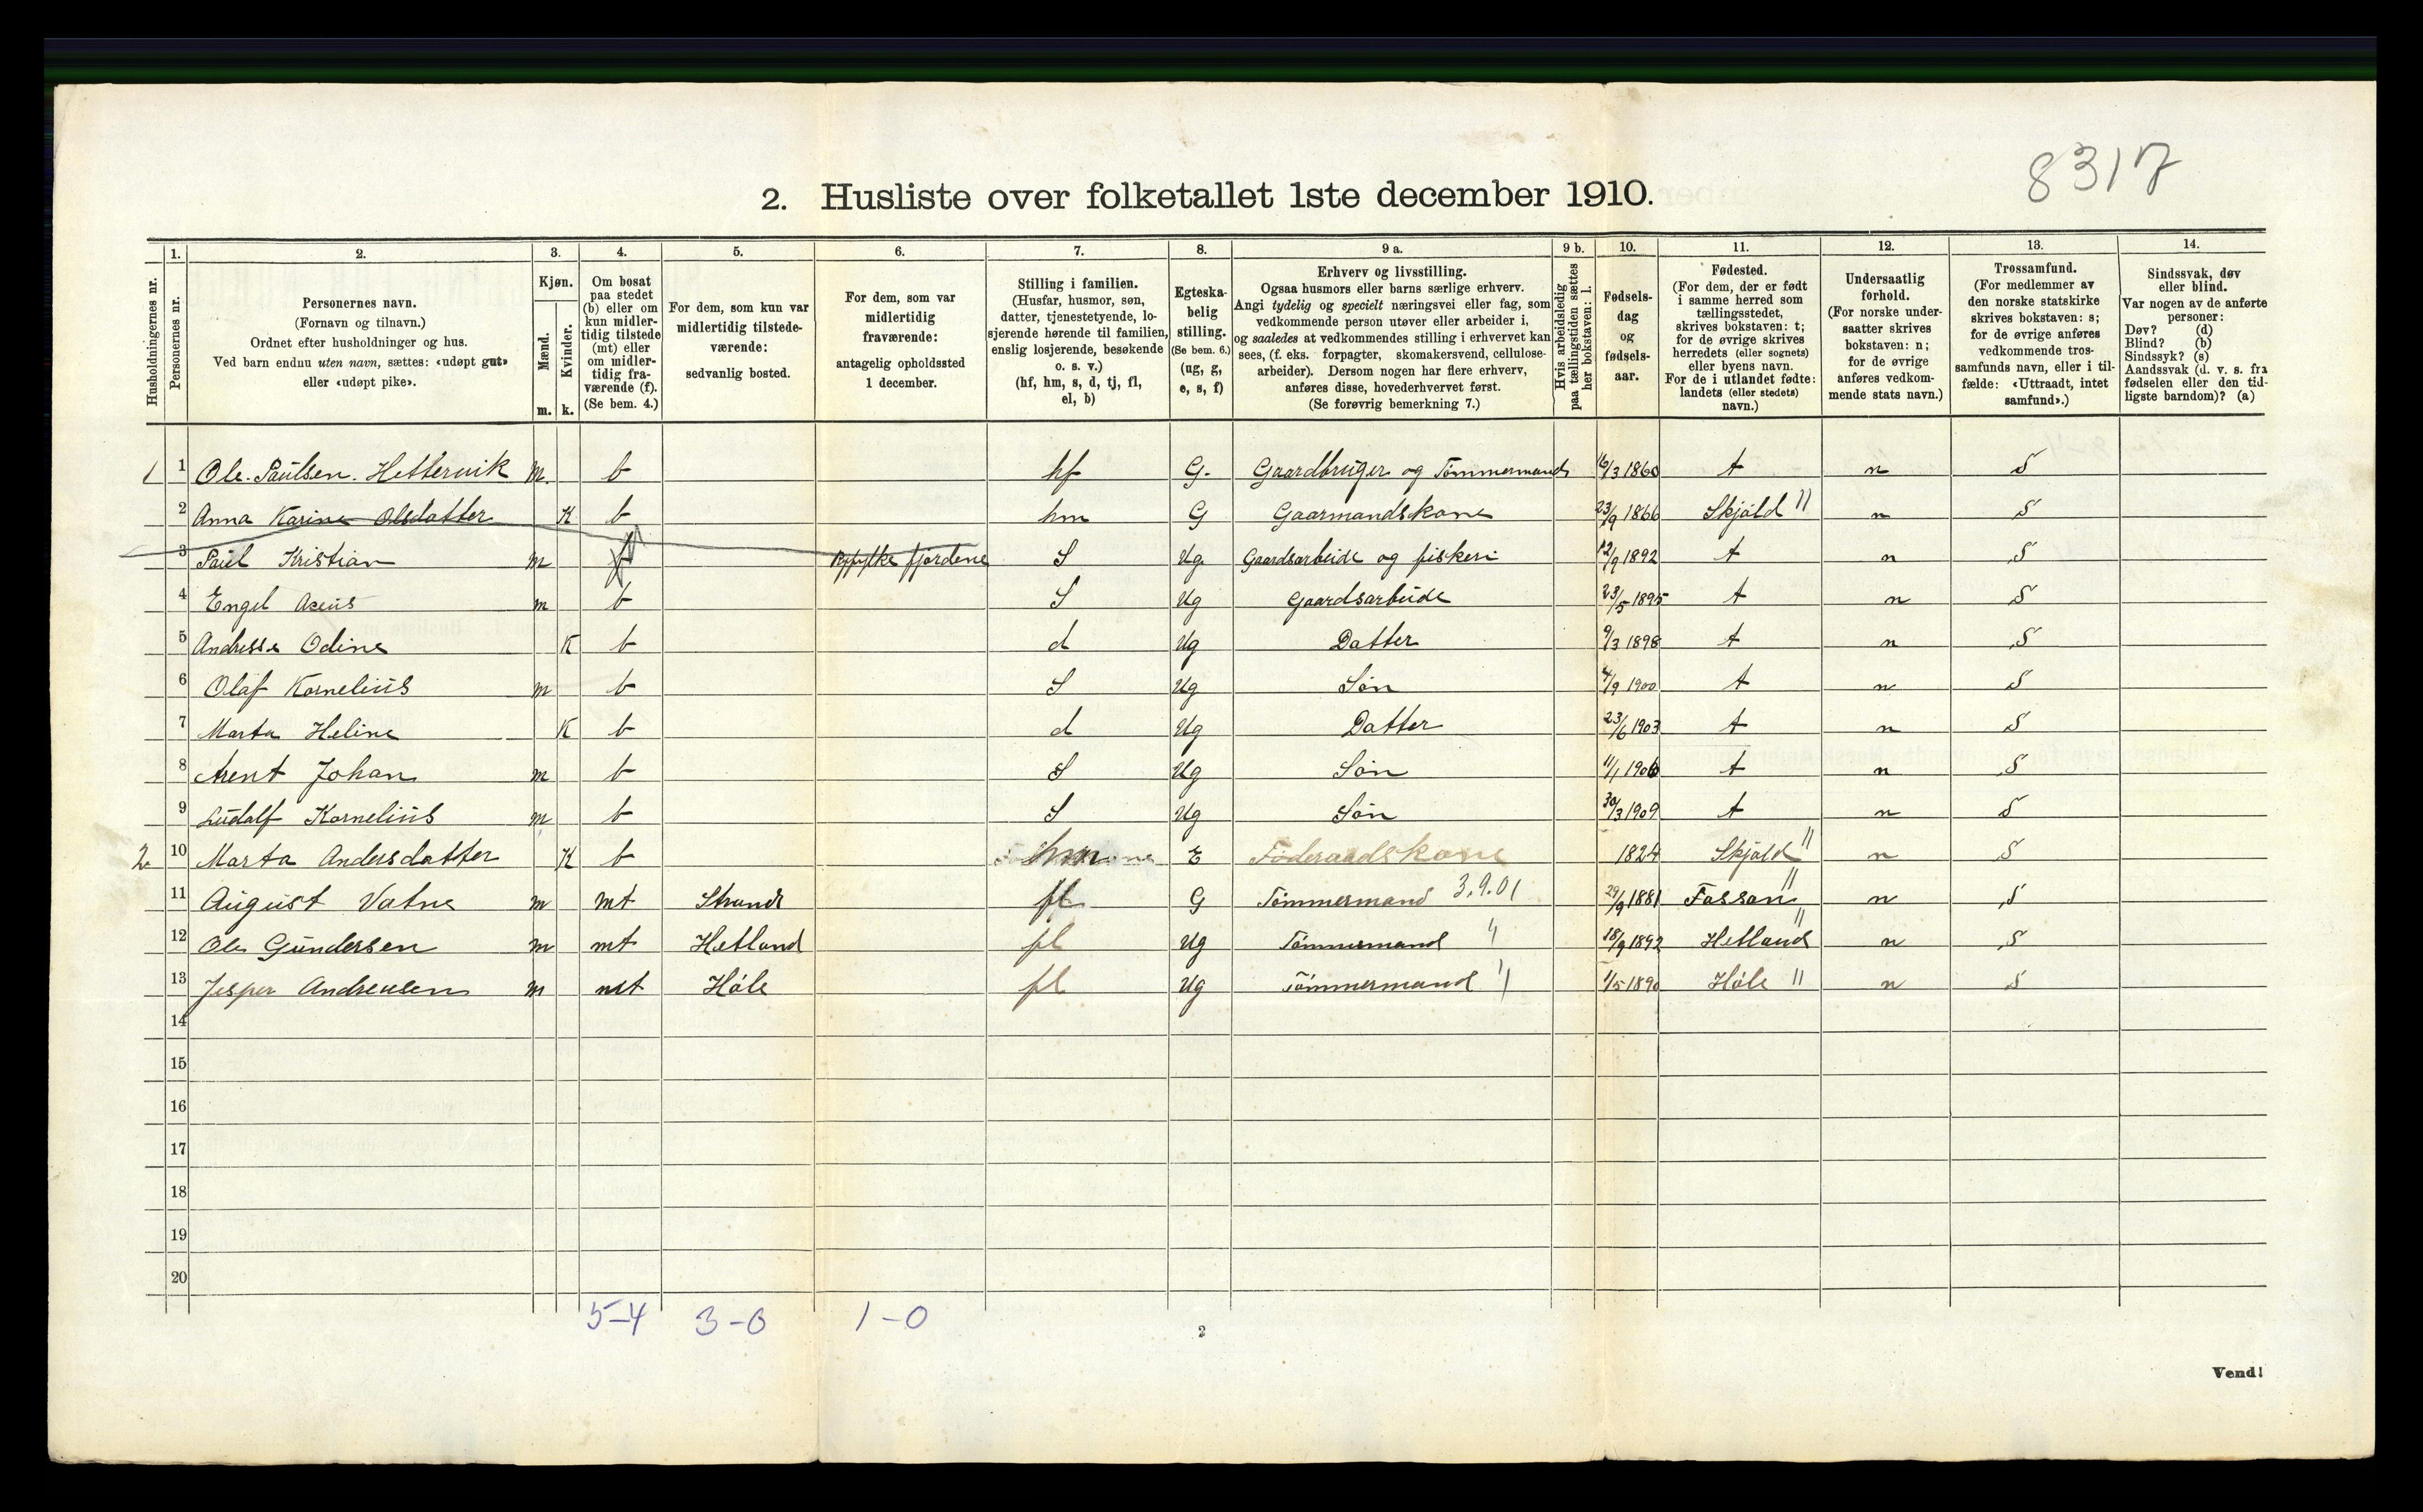 8317
2. Husliste over folketallet 1ste december 1910.
Husholdningernes nr.
1.
Personernes nr.
2.
Personernes navn.
(Fornavn og tilnavn.)
Ordnet efter husholdninger og hus.
Ved barn endnu uten navn, sættes: «udøpt gut»
eller «udøpt pike».
3.
Kjøn.
Mænd.
Kvinder.
m. k.
4.
Om bosat
paa stedet
(b) eller om
kun midler-
tidig tilstede
(mt) eller
om midler-
tidig fra-
værende (f).
(Se bem. 4.)
5.
For dem, som kun var
midlertidig tilstede-
værende:
sedvanlig bosted.
6.
For dem, som var
midlertidig
fraværende:
antagelig opholdssted
1 december.
7.
Stilling i familien.
(Husfar, husmor, søn,
datter, tjenestetyende, lo-
sjerende hørende til familien,
enslig losjerende, besøkende
o. s. v.)
(hf, hm, s, d, tj, fl,
el, b)
8.
Egteska-
belig
stilling.
(Se bem. 6.)
(ug, g,
e, s, f)
9 a.
Erhverv og livsstilling.
Ogsaa husmors eller barns særlige erhverv.
Angi tydelig og specielt næringsvei eller fag, som
vedkommende person utøver eller arbeider i,
og saaledes at vedkommendes stilling i erhvervet kan
sees, (f. eks. forpagter, skomakersvend, cellulose-
arbeider). Dersom nogen har flere erhverv,
anføres disse, hovederhvervet først.
(Se forøvrig bemerkning 7.)
9 b.
Hvis arbeidsledig
paa tællingstiden sættes
her bokstaven: l.
10.
Fødsels-
dag
og
fødsels-
aar.
11.
Fødested.
(For dem, der er født
i samme herred som
tællingsstedet,
skrives bokstaven: t;
for de øvrige skrives
herredets (eller sognets)
eller byens navn.
For de i utlandet fødte:
landets (eller stedets)
navn.)
12.
Undersaatlig
forhold.
(For norske under-
saatter skrives
bokstaven: n;
for de øvrige
anføres vedkom-
mende stats navn.)
13.
Trossamfund.
(For medlemmer av
den norske statskirke
skrives bokstaven: s;
for de øvrige anføres
vedkommende tros-
samfunds navn, eller i til-
fælde: «Uttraadt, intet
samfund».)
14.
Sindssvak, døv
eller blind.
Var nogen av de anførte
personer:
Døv? (d)
Blind? (b)
Sindssyk? (s)
Aandssvak (d. v. s. fra
fødselen eller den tid-
ligste barndom)? (a)
1 1 Ole Paulsen Hettervik m b hf G. Gaardbruger og Tømmermand 16/3 1860 t n S
2 Anna Karine Olsdatter K b hm G Gaarmandskone 23/9 1866 Skjold " n S
3 Paul Kristian m f Ryfylke fjordene S Ug. Gaardsarbeide og fiskeri 12/9 1892 t n S
4 Engel Aseus m b S Ug Gaardsarbeide 23/5 1895 t n S
5 Andresse Odine K b d Ug Datter 9/3 1898 t n S
6 Olaf Kornelius m b S Ug Søn 4/9 1900 t n S
7 Marta Heline K b d Ug Datter 23/6 1903 t n S
8 Arent Johan m b S Ug Søn 11/1 1906 t n S
9 Ludalf Kornelius m b S Ug Søn 30/3 1909 t n S
2 10 Marta Andersdatter K b hm E Føderaadskone 1824 Skjold " n S
11 August Vatne m mt Strand fl G Tømmermand 3.9.01 29/9 1881 Fossan " n S
12 Ole Gundersen m mt Hetland fl Ug Tømmermand " 18/9 1892 Hetland " n S
13 Jesper Andreasen m mt Høle fl Ug Tømmermand " 1/5 1890 Høle " n S
14
15
16
17
18
19
20
5-4 3-0 1-0
2
Vend!